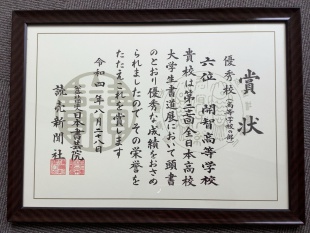 賞状
優秀校（高等学校の部）
六位 開智高等学校
貴校は第二十七回全日本高校
大学生書道展において頭書
のとおり優秀な成績をおさめ
られましたのでその栄誉を
たたえこれを賞します
令和四年八月二十八日
日本書芸院
読売新聞社